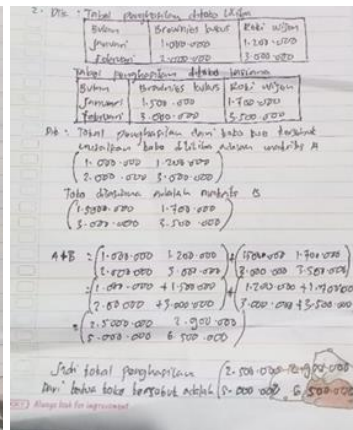 2. Dik : Tabel penghasilan ditoko
Bulan Brownies kukus Roti wijen
Januari 1.000.000 1.200.000
Februari 2.000.000 3.000.000
Tabel penghasilan ditoko
Bulan Brownies kukus Roti wijen
Januari 1.500.000 1.700.000
Februari 3.000.000 3.500.000
Dit : Total penghasilan dari toko kue tersebut
misalkan toko adalah matriks A
1.000.000 1.200.000
2.000.000 3.000.000
Toko adalah matriks B
1.500.000 1.700.000
3.000.000 3.500.000
A+B = (1.000.000 1.200.000) + (1.500.000 1.700.000)
(2.000.000 3.000.000) (3.000.000 3.500.000)
= (1.000.000 + 1.500.000) (1.200.000 + 1.700.000)
(2.000.000 + 3.000.000) (3.000.000 + 3.500.000)
= (2.5000.000 2.900.000)
(5.000.000 6.500.000)
Jadi total penghasilan (2.500.000 2.900.000)
Dari kedua toko tersebut adalah (5.000.000 6.500.000)
Always look for improvement